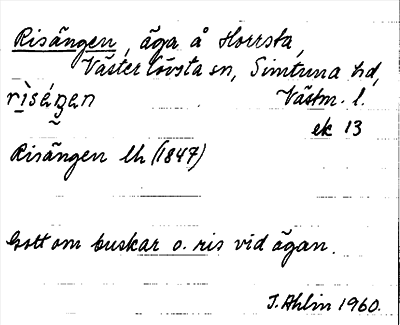 Risängen, äga å Horrsta,
Väster Lövsta sn, Simtuna hd,
rìséŋen Västm. l.
ek 13
Risängen lh (1847)
Gott om buskar o. ris vid ägan.
J. Ahlin 1960.